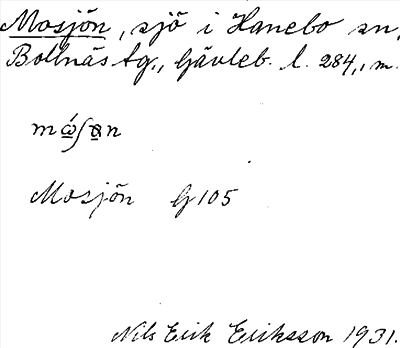 Mosjön, sjö i Hanebo sn,
Bollnäs tg., Gävleb. l. 284,, m.
Mosjön G 105
Nils Erik Eriksson 1931.